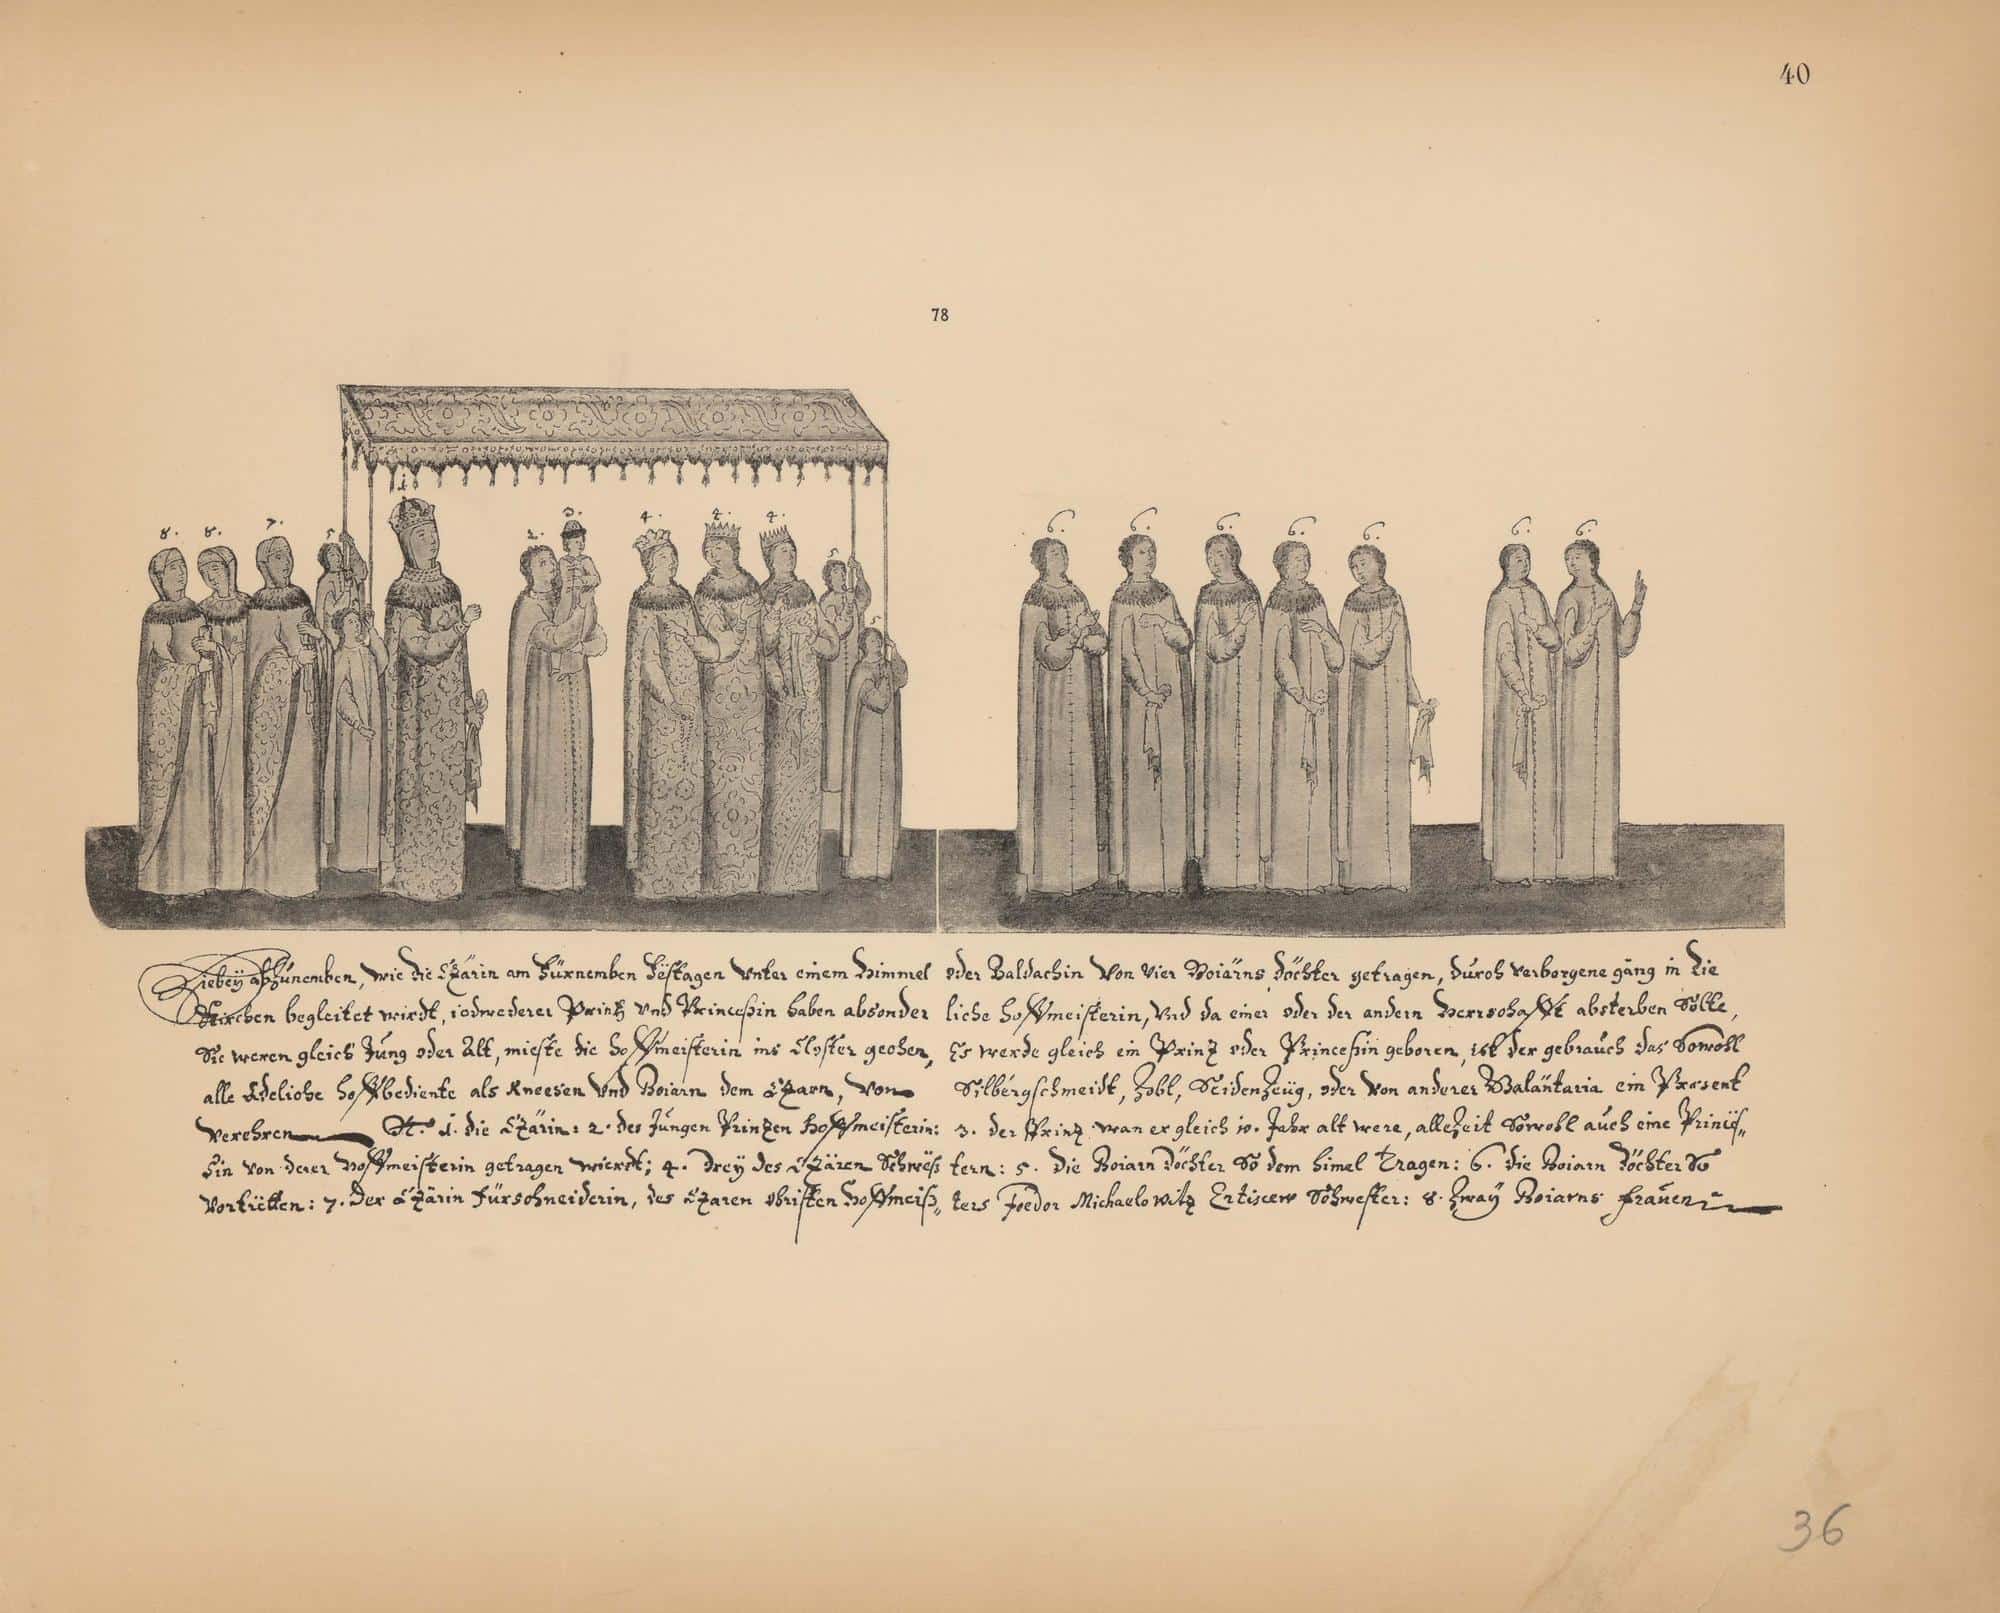 40
78
8. 8. 7. 5 1 2. 3. 4. 4. 4. 5 5 6. 6. 6. 6. 6. 6. 6.
Hiebeÿ abZúnemben, wie die CZärin am fürnemben Festagen vnter einem Himmel oder Baldachin von vier Boiärns döchter getragen, durch verborgene gäng in die
Kirchen begleitet wirdt, iedwederer Printz vnd Princeßin haben absonder liche hoffmeisterin, vnd da einer oder der andern Herrschafft absterben Solte,
Sie weren gleich Jung oder Alt, mieste die hoffmeisterin ins Closter gechen, Es werde gleich ein Prinz oder Princeßin geboren, ist der gebrauch das Sowohl
alle Adeliche hoffbediente als Kneesen Vnd Boiarn dem CZarn, von Silbergschmeidt, Zobl, SeidenZeüg, oder von anderer Galäntaria ein Præsent
verehren N.° 1. die CZärin: 2. des Jungen Prinzen Hoffmeisterin: 3. der Prinz wan er gleich 10. Jahr alt were, alleZeit Sowohl auch eine Princeß„
Sin von derer Hoffmeisterin getragen wierdt; 4. Dreÿ des CZären Schweß tern: 5. die Boiarn Döchter So dem himel Tragen: 6. die Boiarn Döchter So
vortretten: 7. Der CZärin Fürschneiderin, des CZaren obristen Hoffmeiß„ ters Foedor Michaelowitz Ertiscew Schwester: 8. Zwaÿ Boiarns frauen
36